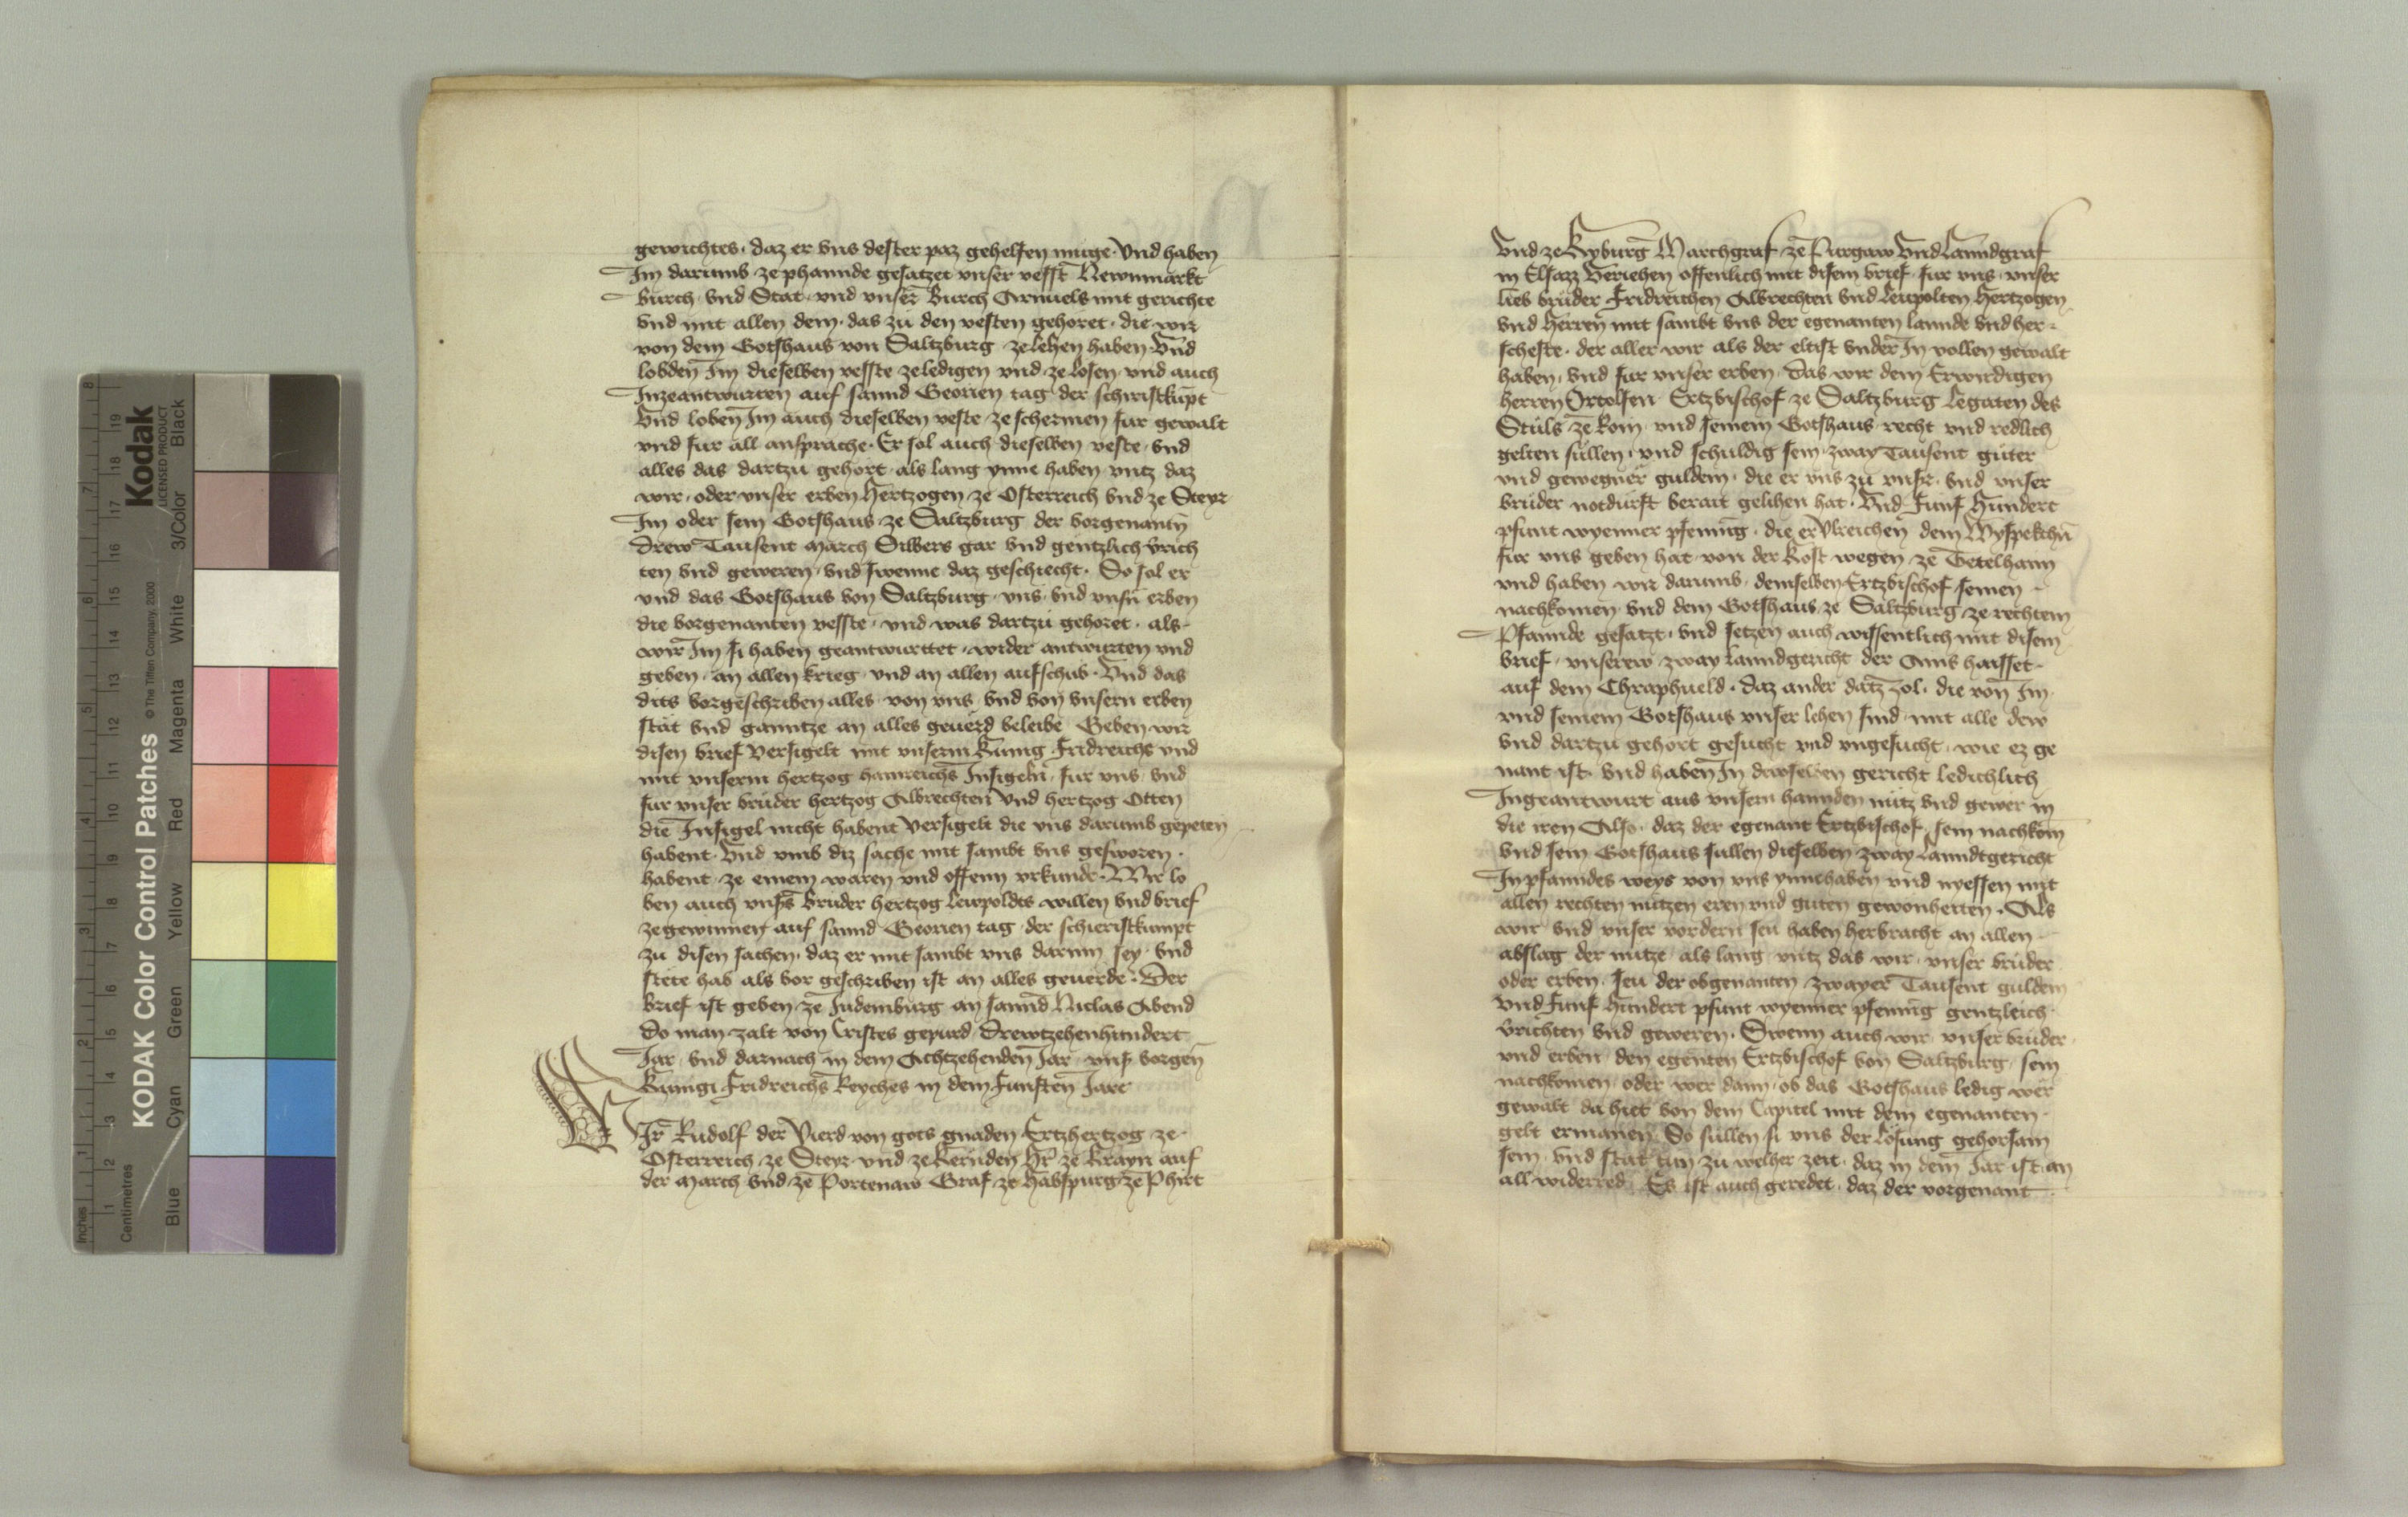 gewichtes · daz er vns dester paz gehelfen muge · Vnd haben
Im darumb · ze phannde gesatzet vnser vesst Newnmarkt
Burch · vnd Stat · vnd vnser Burch Arnuels mit gerichte
vnd mit allen dem · das zu den vesten gehoret · die wir
von dem Gotshaus von Saltzburg ze lehen haben · Vnd
lobden Im dieselben vesste ze ledigen vnd ze losen · vnd auch
Inzeantwurten auf sannd Georien tag der schiristkupt
Vnd loben Im auch dieselben veste · ze schermen fur gewalt
vnd fur all ansprache · Er sol auch dieselben veste · vnd
alles das dartzu gehort · als lang ynne haben vntz daz
wir · oder vnser erben Hertzogen ze Osterreich vnd ze Steyr
Im oder sein Gotshaus ze Saltzburg der vorgenantn
drew Tausent March Silbers gar vnd gentzlich vrich
ten vnd geweren · vnd swenne daz geschiecht · So sol er
vnd das Gotshaus von Saltzburg · vns · vnd vnsn erben
die vorgenanten vesste · vnd was dartzu gehoret · als
wir Im si haben geantwurttet · wider antwurten vnd
geben · an allen krieg · vnd an allen aufschub · Vnd das
dits vorgeschriben alles · von vns · vnd von vnsern erben
stat vnd ganntze an alles geuerd beleibe Geben wir
disen brief Versigelt mit vnserm Kunig Fridreichs vnd
mit vnserm hertzog hainreichs Insigeln · fur vns · vnd
fur vnser bruder hertzog Albrechten Vnd hertzog Otten
die Insigel nicht habent Versigelt die vns darumb gepeten
habent · Vnd vmb diz sache mit sambt vns gesworen ·
habent · ze einem waren vnd offenn vrkunde · Wir lo
ben auch vnsers bruder hertzog Leupoldts willen vnd brief
ze gewinnen auf sannd Georien tag · der schieristkumpt
zu disen sachen · daz er mit sambt vns darinn sey · vnd
stete hab als vor geschriben ist an alles geuerde · Der
brief ist geben · ze Judemburg an sannd Niclas Abend
do man zalt von Cristes gepurd · Drewtzehenhundert
Jar · vnd darnach in dem Achtzehenden Jar · vns vorgen
Kunigi Fridreichs Reyches in dem Funften Jare
WIr Rudolf der Vierd von gots gnaden Ertzhertzog ze
Osterreich · ze Steyr · vnd ze Kernden Hr ze Krayn auf
der March vnd ze Portenaw Graf ze Habspurg ze Phirt
Vnd ze Kyburg Marchgraf ze Purgaw Vnd Lanndgraf
in Elsazz Veriehen offenlich mit disem brief · fur vns · vnser
lieb bruder Fridreichen Albrechten vnd Leupolten Hertzogen
vnd Herren mit sambt vns der egenanten lannde vnd her
scheffte · der aller wir als der eltist vnder In vollen gewalt
haben · vnd fur vnser erben · das wir dem Erwirdigen
herren Ortolfen Ertzbischof ze Saltzburg Legaten des
Stuls ze Rom · vnd seinem Gotshaus recht vnd redlich
gelten sullen · vnd schuldig sein · zway Tausent guter
vnd gewegner guldein · die er vns zu vnsr · vnd vnser
bruder notdurft berait gelihen hat · Vnd Funf Hundert
pfunt wyenner pfening · die er Vlreichen dem Wyspekchn
fur vns geben hat · von der kost wegen · ze Tetelhaim
vnd haben wir darumb · demselben Ertzbischof seinen
nachkomen · vnd dem Gotshaus ze Saltzburg · ze rechtem
Pfannde gesatzt · vnd setzen auch wissentlich mit disem
brief · vnserew zway lanndgericht der Ains haisset ·
auf dem Chraphueld · daz ander datz Zol · die von Im
vnd seinem Gotshaus vnser lehen sind · mit alle dew
vnd dartzu gehort gesucht vnd vngesucht · wie ez ge
nant ist · vnd haben In dewselben gericht ledichlich
Ingeantwurt aus vnsern hannden nutz vnd gewer in
die iren Also · daz der egenant Ertzbischof · sein nachkom
vnd sein Gotshaus sullen dieselben zway Lanndtgericht
In pfanndes weys von vns ynnehaben vnd nyessen mit
allen rechten nutzen eren vnd guten gewonheiten · Als
wir vnd vnser vordern seu haben herbracht an allen
abslag der nutze · als lang · vntz das wir · vnser bruder
oder erben · seu der obgenanten · zwayer Tausent guldein
vnd Funf hundert pfunt wyenner pfening gentzleich
vrichten vnd geweren · Swenn auch wir · vnser bruder
vnd erben · den egenten Ertzbischof von Saltzburg · sein
nachkomen · oder wer dann · ob das Gotshaus ledig wer
gewalt da hiet von dem Capitel mit dem egenanten ·
gelt ermanen · So sullen si vns der losung gehorsam
sein · vnd stat tun zu welher zeit · daz in dem Jar ist · an
all widerred · Es ist auch geredet · daz der vorgenant
KODAK Color Control Patches
© The Tiffen Company, 2000
Kodak
LICENSED PRODUCT
Inches
Centimetres
Blue
Cyan
Green
Yellow
Red
Magenta
White
3/Color
Black